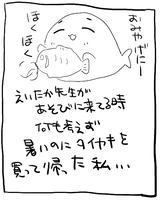 おみやげにー
ほくほく
えいたか先生が
あそびに来てる時
何も考えず
暑いのにタイヤキを
買って帰った私…